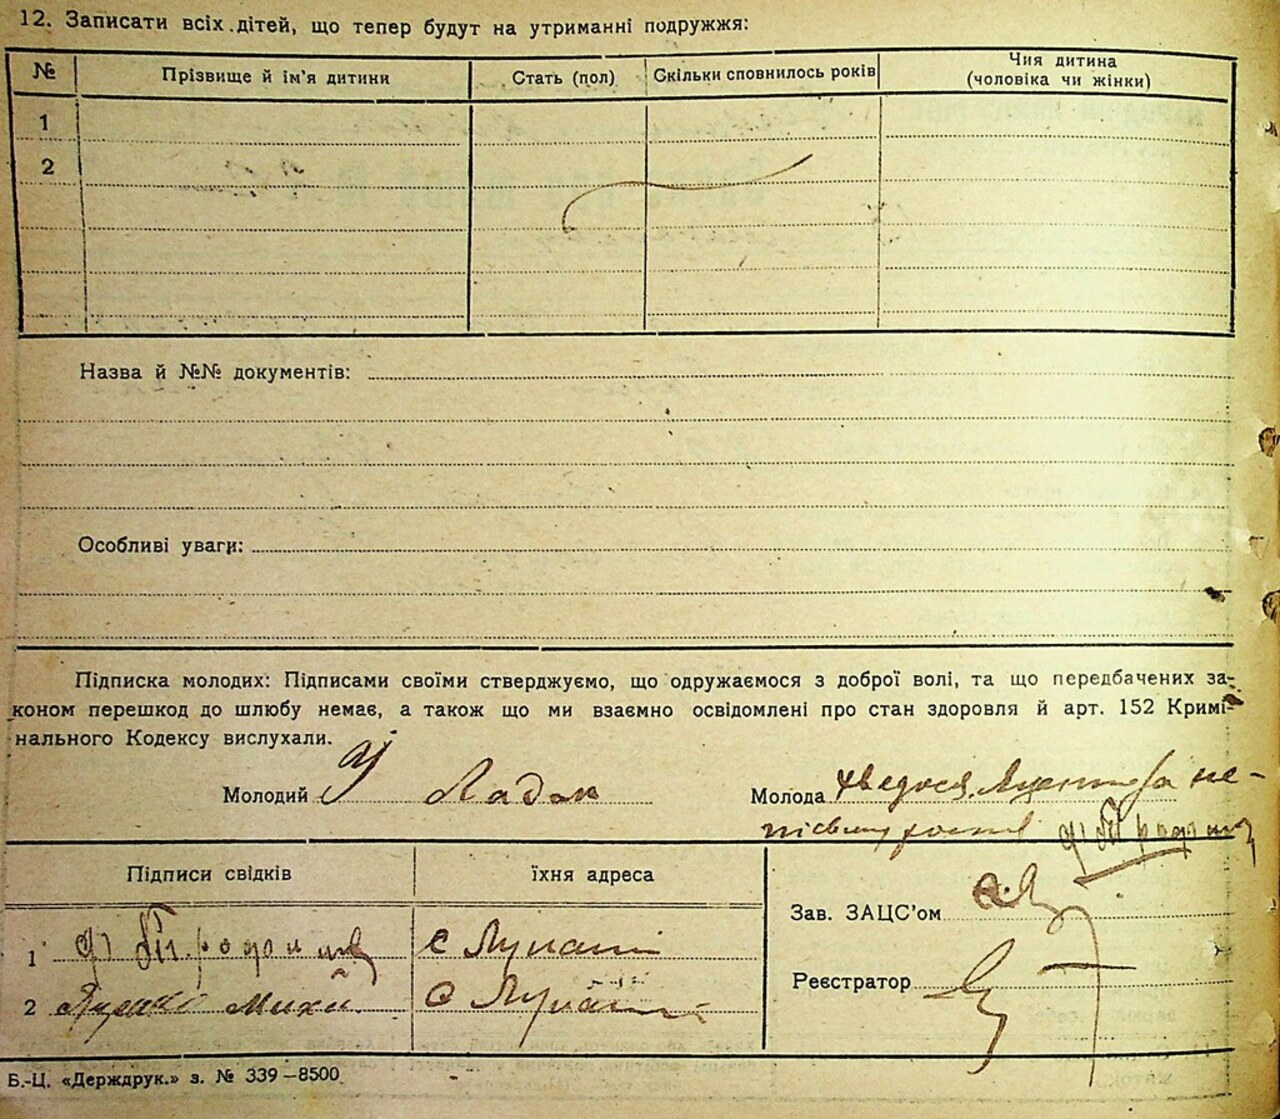 12. Записати всіх дітей, що тепер будут на утриманні подружжя:
№ Прізвище й ім'я дитини Стать (пол) Скільки сповнилось років Чия дитина (чоловіка чи жінки)
1
2
Назва й №№ документів:
Особливі уваги:
Підписка молодих: Підписами своїми стверджуємо, що одружаємося з доброї волі, та що передбачених за-
коном перешкод до шлюбу немає, а також що ми взаємно освідомлені про стан здоровля й арт. 152 Кримі-
нального Кодексу вислухали.
Молодий Ладок Молода
Підписи свідків їхня адреса
Зав. ЗАЦС'ом
1 с
Реєстратор
2 с
Б.-Ц. «Держдрук.» з. № 339–8500